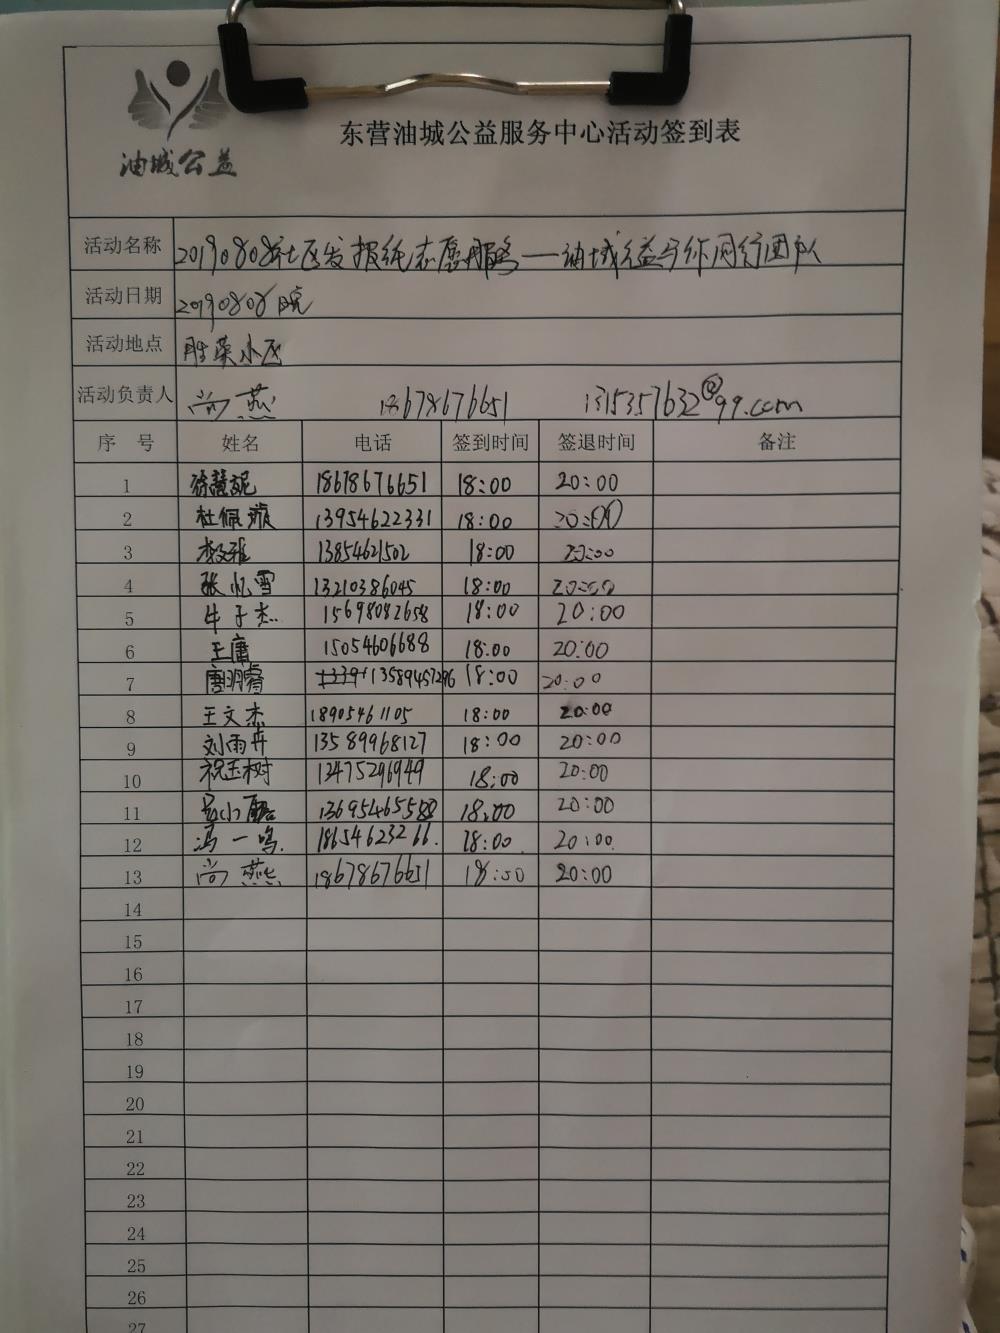 油城公益
东营油城公益服务中心活动签到表
活动名称 20190808社区发报纸志愿服务——油城公益与你同行团队
活动日期 20190808 晚
活动地点 胜采小区
活动负责人 尚燕 18678676651 1315357632@qq.com
序 号 姓名 电话 签到时间 签退时间 备注
1 徐慧妮 18678676651 18:00 20:00
2 杜佩璇 13954622331 18:00 20:00
3 1385461502 18:00 20:00
4 张忆雪 13210386045 18:00 20:00
5 牛子杰 15698082658 18:00 20:00
6 王庸 15054606688 18:00 20:00
7 唐明睿 13589457296 18:00 20:00
8 王文杰 18905461105 18:00 20:00
9 刘雨卉 13589968127 18:00 20:00
10 祝玉树 13475296949 18:00 20:00
11 13695465588 18:00 20:00
12 冯一鸣. 18654623266. 18:00. 20:00.
13 尚燕 18678676651 18:00 20:00
14
15
16
17
18
19
20
21
22
23
24
25
26
27